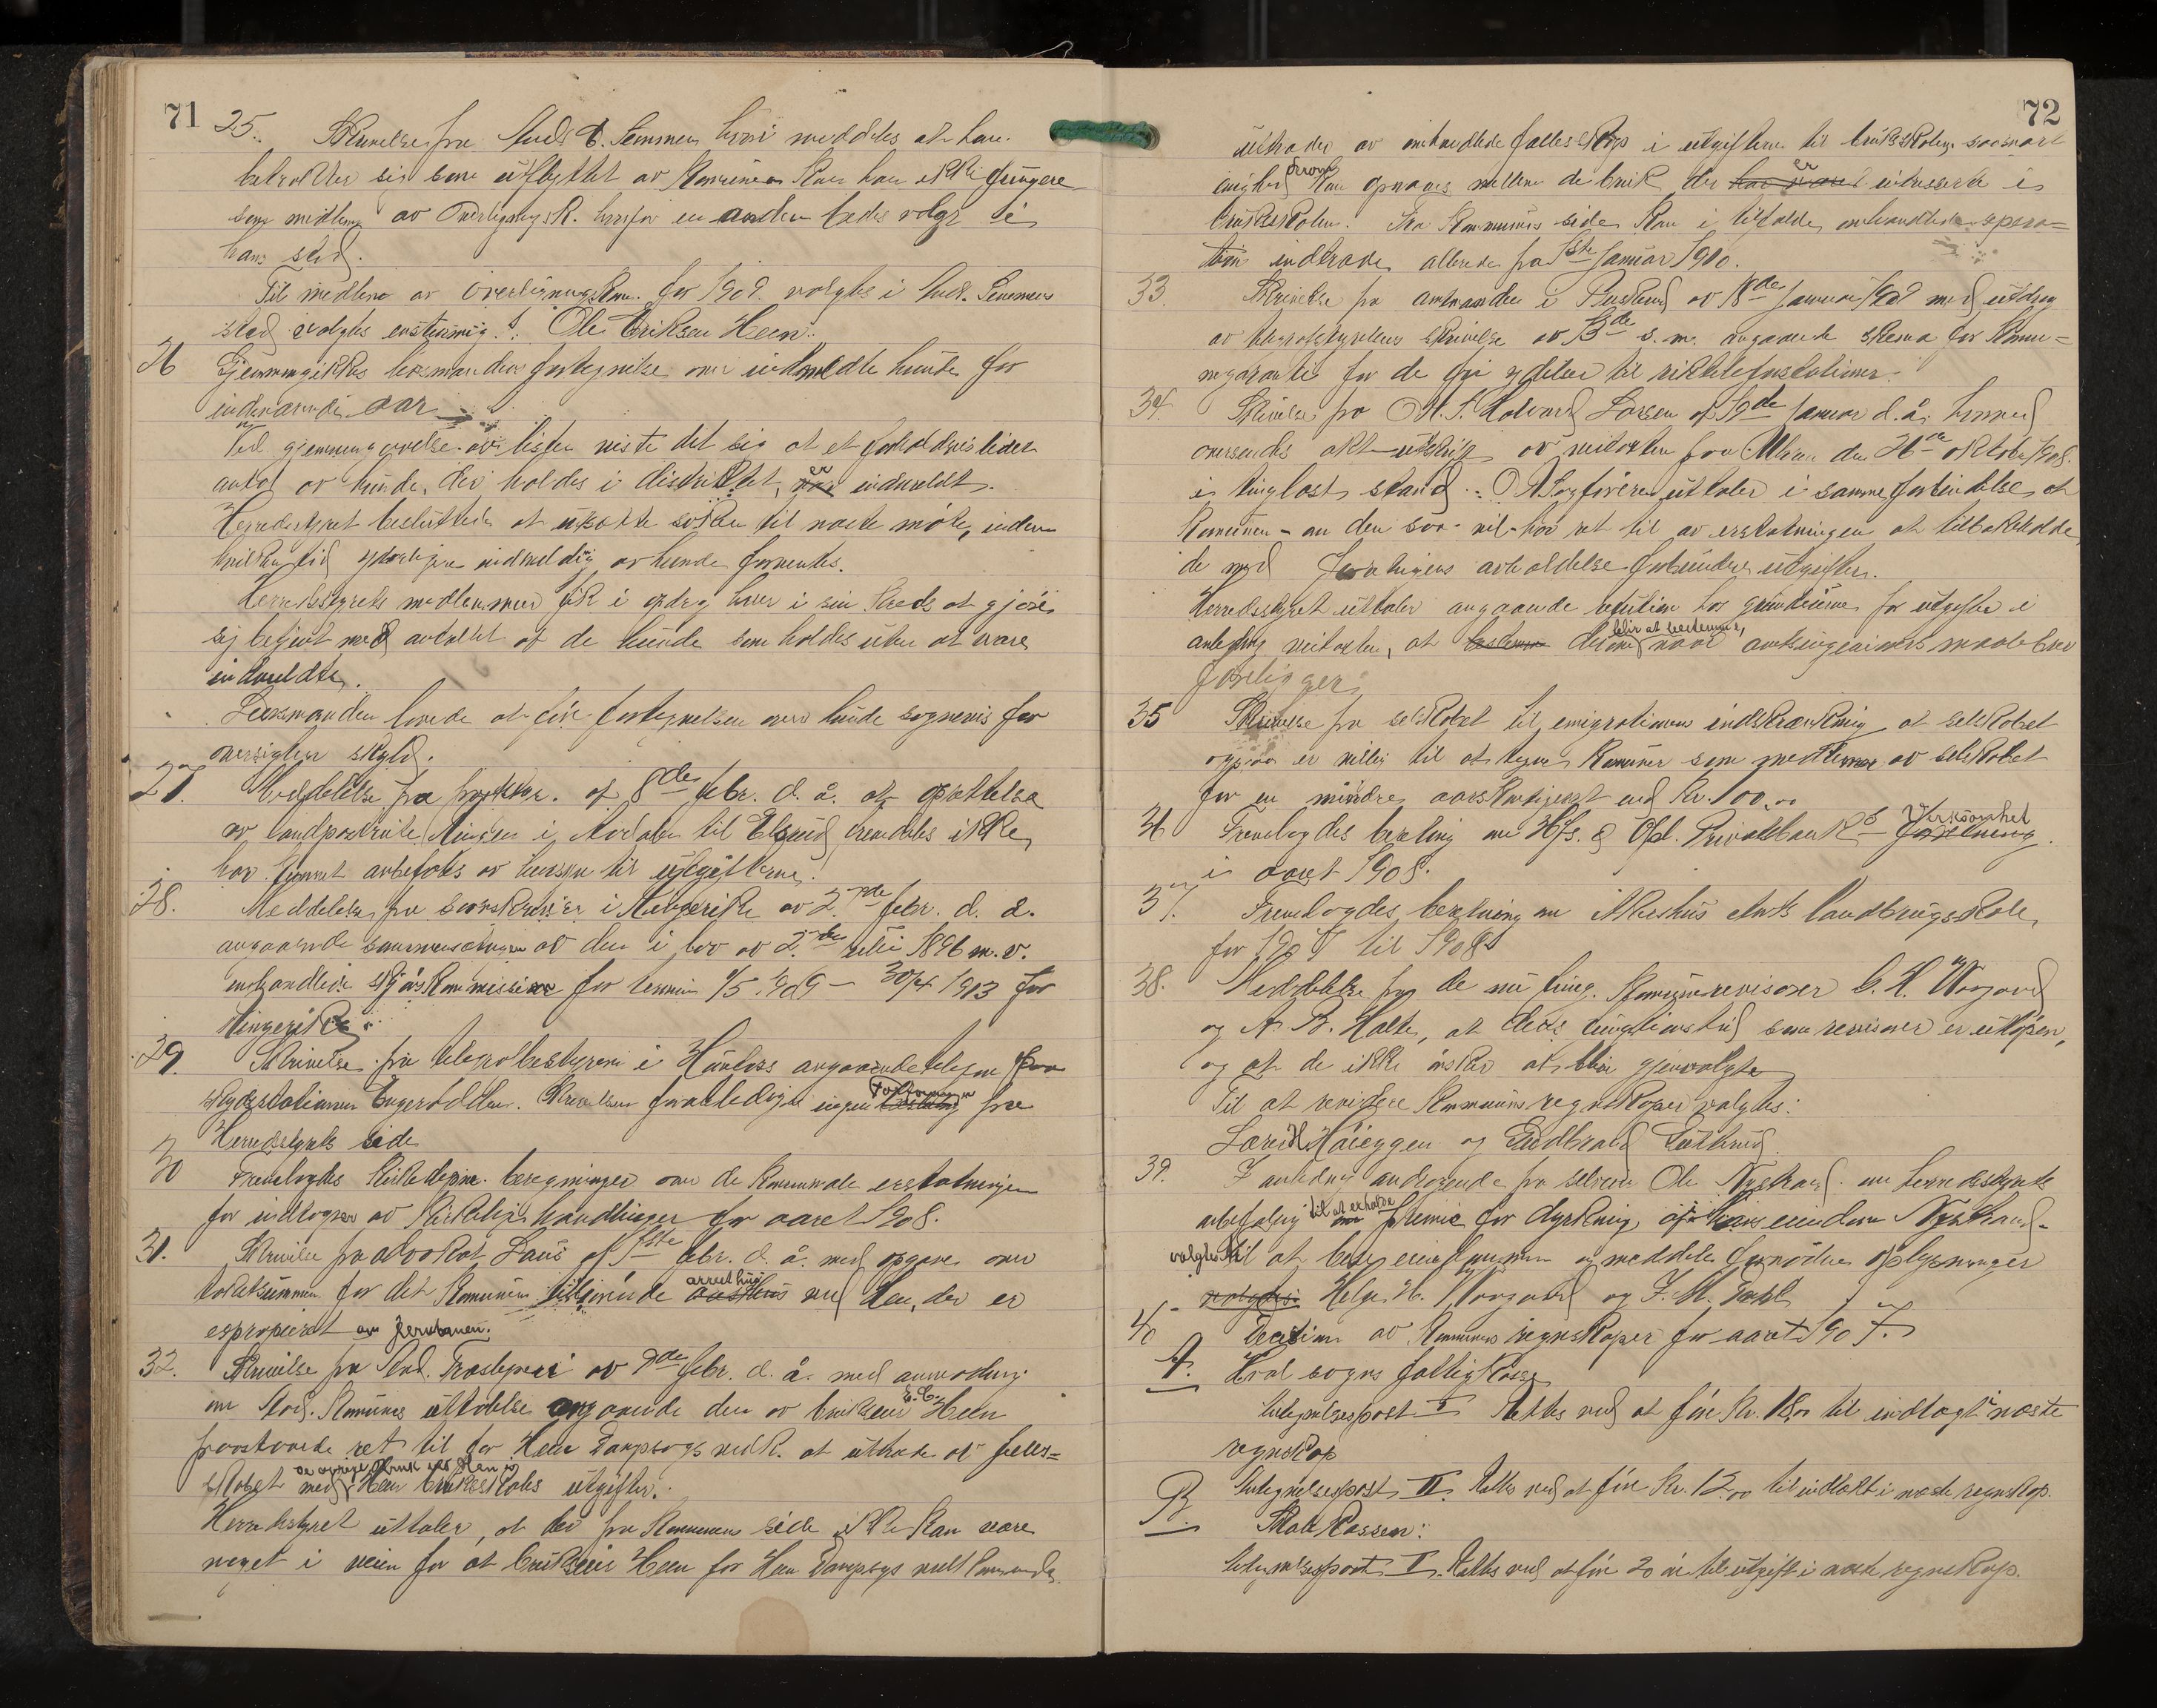 71
25. Skrivelse fra Guds E. Semmen hvori meddeles at han
betrakter sig som utflyttet av Komunen kan han ikke fungere
som medlem av Overligningsk. hvorfor en anden bedes valgt i
hans sted.
Til medlem av Overligningskom. for 1909 valgtes i Semmens
sted valgtes enstemmig: Ole Eriksen Heen.
26 Gjennemgikkes lensmandens fortegnelse over indmeldte hunde for
indeværende aar.
Ved gjennemgaaelse av listen viste det sig at et forholdsvis lidet
antal av hunde, der holdes i distriktet, var er indmeldt.
Herredsstyret besluttede at utsætte saken til næste møte, inden
hvilken tid yderligere indmelding av hunde forventes.
Herredsstyrets medlemmer fik i opdrag hver i sin kreds at gjøre
sig bekjent med antallet af de hunde som holdes uten at være
indmeldte.
Lensmanden lovede at føre fortegnelsen over hunde sognevis for
oversigtens skyld.
27. Meddelelse fra postktr. af 8de febr. d. å. at oprettelse
av landpostrute i Aadalen til Elsrud fremdeles ikke
har kunnet anbefales av hensyn til utgifterne.
28. Meddelelse fra sorenskriver i Ringerike av 2den febr. d. å.
angaaende sammensætningen av den i lov av 2den juli 1896 m. v.
omhandlede skjønskommission for termin 1/5 1909 - 30/4 1913 for
Ringerike.
29. Skrivelse fra telegrafbestyreren i Hønefoss angaaende telefon fra
skydsstationen Engerodden. Skrivelsen foranledigte ingen uttalelse fra
Herredsstyrets side
30 Fremlagdes Kirkedep. beregninger over de kommunale erstatninger
for indtægter av kirkelige handlinger for aaret 1908.
31. Skrivelse fra advokat Laus af 1ste febr. d. å. med opgave over
takstsummen for det Komunen tilhørende arresthus ved Hen, der er
exproprieret av Jernbanen.
32. Skrivelse fra And. Træsliperi av 9de febr. d. å. med anmodning
om Aad. Komunes uttalelse angaaende den av brukseier E. C. Heen
paastaaede ret til for Heen Dampsag vedk. at uttræde av fælles-
skabet med de øvrige bruk ved Hen i Hen bruksskoles utgifter.
Herredsstyret uttaler, at der fra Komunens side ikke kan være
noget i veien for at brukseier Heen for Hen Dampsags vedkommende
72
uttræder av omhandlede fællesskap i utgifterne til bruksskolen saasnart
enighet herom kan opnaaes mellem de bruk der har været er interessert i
bruksskolen. Fra Kommunens side kan i tilfælde omhandlede separa-
tion indtræde allerede fra 1ste Januar 1910.
33. Skrivelse fra amtmanden i Buskerud av 18de Januar 1909 med utdrag
av telegrafstyrelsens skrivelse av 13de s. m. angaaende skema for Komu-
negaranti for de fri ydelser til rikstelefonstationer.
34. Skrivelse fra O.R.S. Halvard Larsen af 19de Januar d. å. hvormed
oversendes akt-utskrift av veitaksten fra Uhren den 26de oktober 1908.
i tinglæst stand. O.R.Sagføreren uttaler i samme forbindelse, at
Komunen - om den saa vil - har ret til av erstatningen at tilbakeholde
de med forretningens avholdelse forbundne utgifter.
Herredsstyret uttaler angaaende refution hos grundeierne for utgifter i
anledning veitaksten, at bestemme dermed blir at bestemme, naar amtsingeniørens maalebrev
foreligger.
35 Skrivelse fra selskabet til emigrationens indskrænkning at selskabet
ogsaa er villig til at tegne Komuner som medlemmer av selskabet
for en mindre aarskontingent end Kr. 100,00
36 Fremlagdes beretning om Hfs. & Opl. Privatbanks Virksomhet
i aaret 1908.
37. Fremlagdes beretning om Akershus Amts landbrugsskole
for 1907 til 1908.
38. Meddelelse fra de nu fung. Komunerevisorer C. H. Mogaard
og A. B. Holte, at deres funktionstid som revisorer er utløpen,
og at de ikke ønsker at bli gjenvalgte
Til at revidere Kommunens regnskaper valgtes:
Lærer Høieggen og Gudbrand Tutherud.
39. I anledning andragende fra selveier Ole Nystrand om herredsstyrets
anbefaling til at erholde præmie for dyrkning av hans eiendom Nystrand
valgtes til at bese eiendommen og meddele fornødne oplysninger
valgtes: Helge H. Moogaard og J. M. Dahl
40 Decision av Kommunens regnskaper for aaret 1907.
A. Hval sogns fattigkasse
Antegnelsespost I Rettes ved at føre Kr. 18,00 til indtægt i næste
regnskap
Antegnelsespost II. Rettes ved at føre Kr. 12,00 til indtækt i næste regnskap.
B. Skolekassen:
Antegnelsespost I. Rettes ved at føre 20 øre til utgift i næste regnskap.